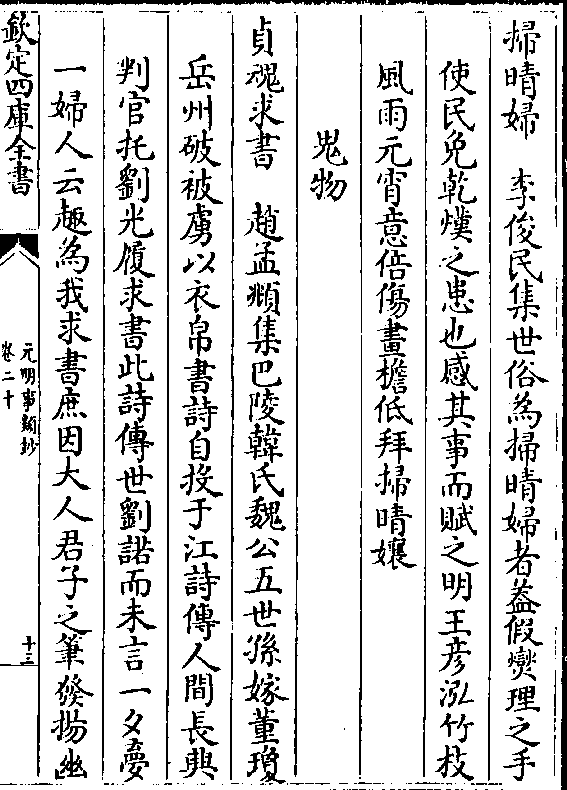 掃晴婦　李俊民集世俗為掃晴婦者葢假爕理之手
使民免乾熯之患也感其事而賦之明王彦泓竹枝
風雨元宵意倍傷畫檐低拜掃晴孃
鬼物
貞魂求書　趙孟頫集巴陵韓氏魏公五世孫嫁董瓊
岳州破被虜以衣帛書詩自投于江詩傳人間長興
判官托劉光履求書此詩傳世劉諾而未言一夕夢
一婦人云趣為我求書庶因大人君子之筆發揚幽
欽定四庫全書
元明事類鈔
卷二十
十三